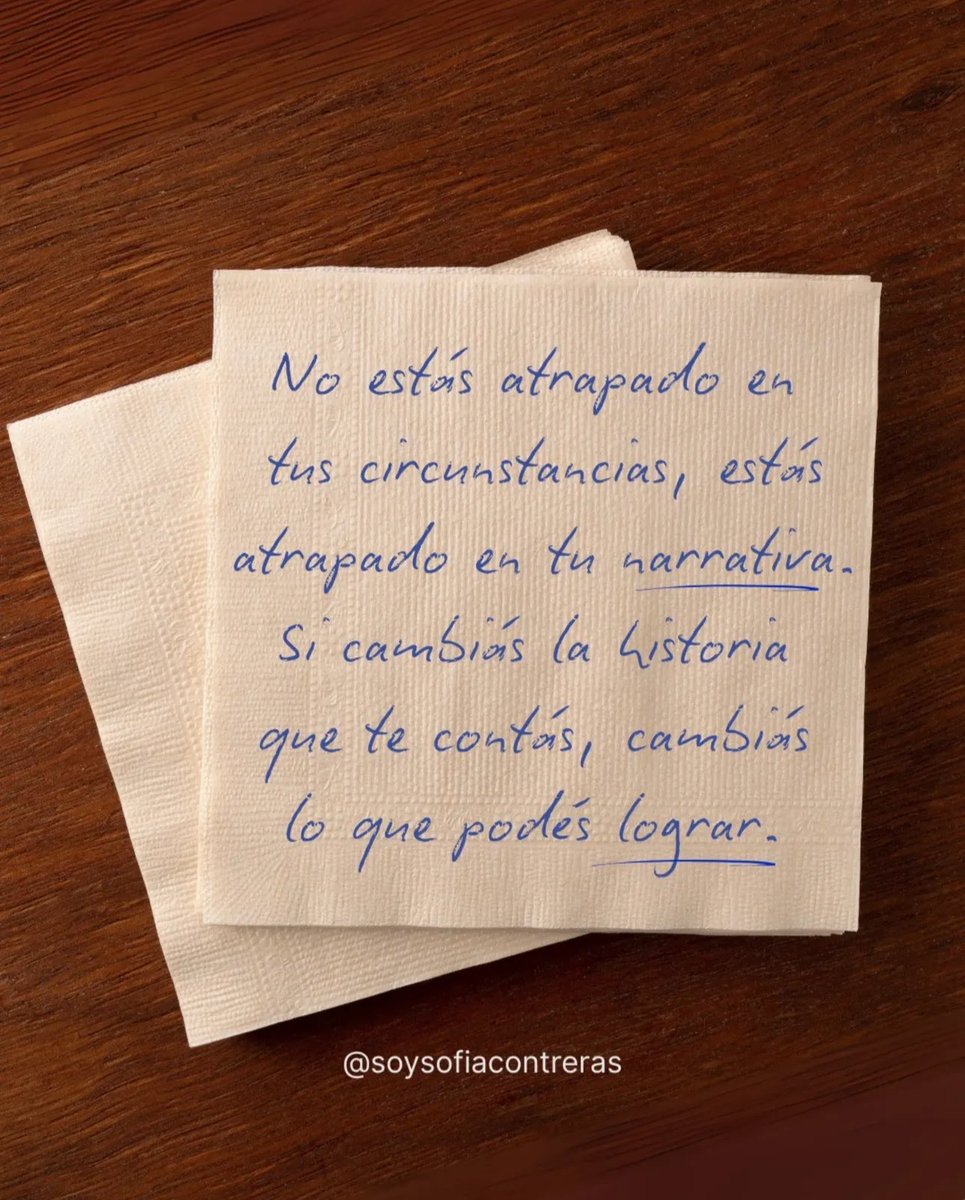 No estás atrapado en
tus circunstancias, estás
atrapado en tu narrativa.
Si cambiás la historia
que te contás, cambiás
lo que podés lograr.
@soysofiacontreras